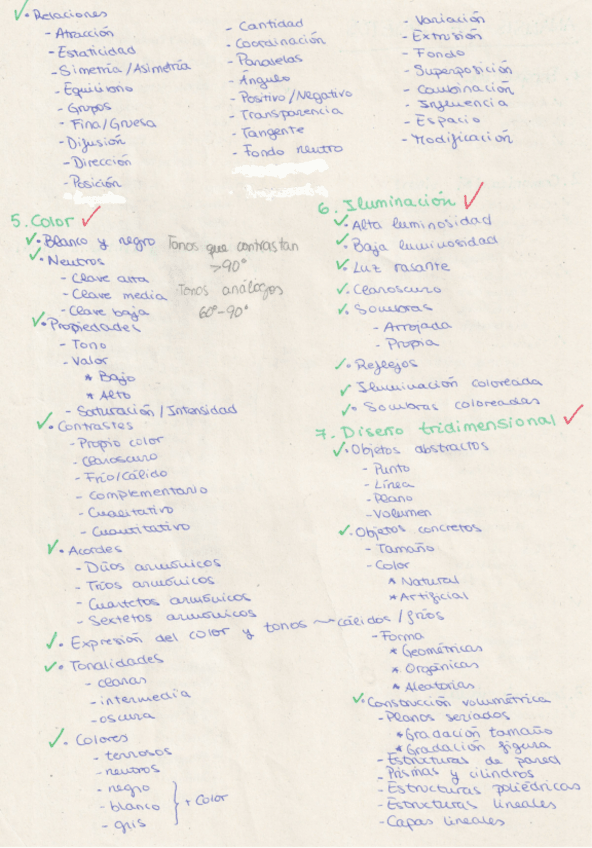 ✓• Relaciones
- Atracción
- Estaticidad
- Simetría / Asimetría
- Equilibrio
- Grupos
- Fina / Gruesa
- Difusión
- Dirección
- Posición
- Cantidad
- Coordinación
- Paralelas
- Ángulo
- Positivo / Negativo
- Transparencia
- Tangente
- Fondo neutro
- Variación
- Extrusión
- Fondo
- Superposición
- Combinación
- Influencia
- Espacio
- Modificación
5. Color ✓
✓• Blanco y negro
✓• Neutros
- Clave alta
- Clave media
- Clave baja
Tonos que contrastan
>90°
Tonos análogos
60°-90°
✓• Propiedades
- Tono
- Valor
* Bajo
* Alto
- Saturación / Intensidad
✓• Contrastes
- Propio color
- Claroscuro
- Frío/Cálido
- Complementario
- Cualitativo
- Cuantitativo
✓• Acordes
- Dúos armónicos
- Tríos armónicos
- Cuartetos armónicos
- Sextetos armónicos
✓• Expresión del color y tonos → cálidos / fríos
✓• Tonalidades
- claras
- intermedia
- oscura
✓• Colores
- terrosos
- neutros
- negro
- blanco
- gris
} + Color
6. Iluminación ✓
✓• Alta luminosidad
✓• Baja luminosidad
✓• Luz rasante
✓• Claroscuro
✓• Sombras
- Arrojada
- Propia
✓• Reflejos
✓ Iluminación coloreada
✓• Sombras coloreadas
7. Diseño tridimensional ✓
✓• Objetos abstractos
- Punto
- Línea
- Plano
- Volumen
✓• Objetos concretos
- Tamaño
- Color
* Natural
* Artificial
- Forma
* Geométricas
* Orgánicas
* Aleatorias
✓• Construcción volumétrica
- Planos seriados
* Gradación tamaño
* Gradación figura
- Estructuras de pared
- Prismas y cilindros
- Estructuras poliédricas
- Estructuras lineales
- Capas lineales